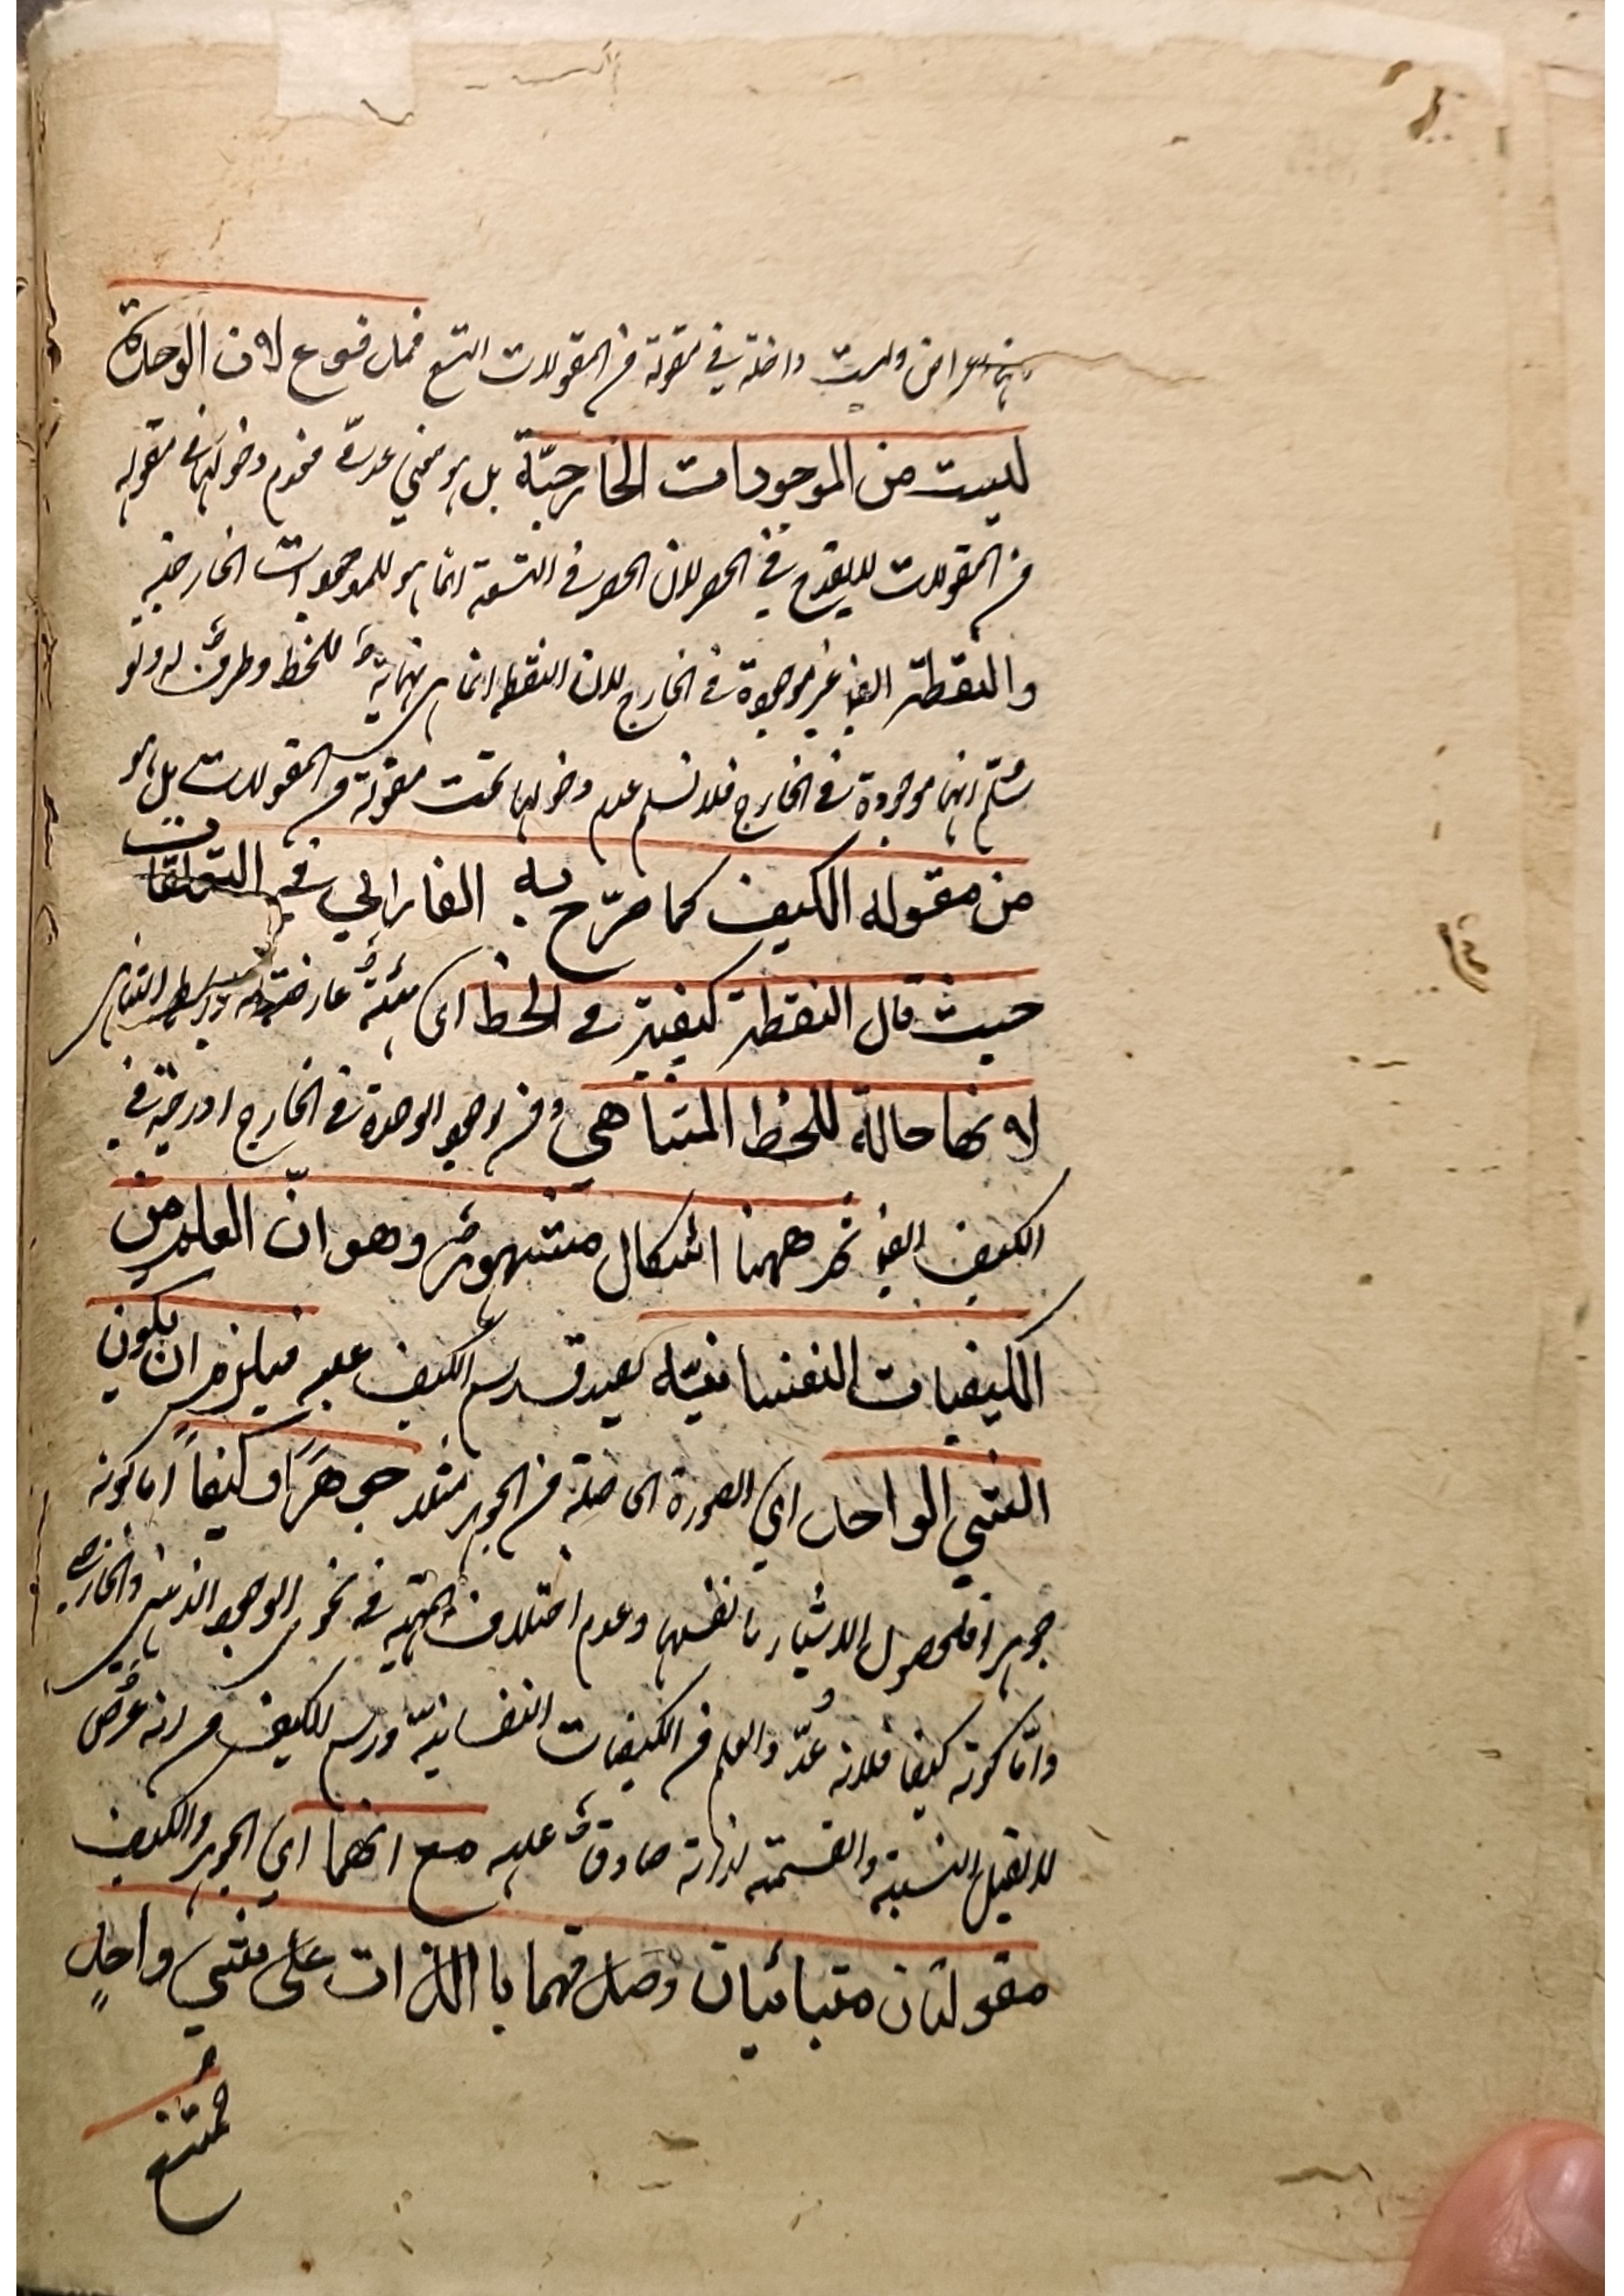 اعراض وليست داخلة في مقولة من المقولات التسع فمدفوع لان الوحدة
ليست من الموجودات الخارجيّة بل هو معني عددي فعدم دخولها في مقوله
من المقولات لا يقدح في الحصر لان الحصر في التسعة انما هو للموجودات الخارجيه
والنقطة ايضا غير موجودة في الخارج لان النقطه انما هي نهايةٌ للخط وطرفٌ له ولو
سُلّم انها موجودة في الخارج فلا نسلم عدم دخولها تحت مقولة من المقولات بل هو
من مقوله الكيف كما صرّح به الفارابي في التعليقات
حيث قال النقطة كيفية في الخط اي هيئةٌ عارضة له بواسطه التناهي
لانها حالة للخط المتناهي ومن وجود الوحدة في الخارج ادرجه في
الكيف ايضا ثم ههنا اشكال مشهورٌ وهو انّ العلم من
الكيفيات النفسانيّه لصدق رسم الكيف عليه فيلزم ان يكون
الشيي الواحد اي الصورة الحاصلة من الجوهر مثلا جوهَرًا وكيفاً اما كونه
جوهرا فلحصول الاشياء بانفسها وعدم اختلاف المهيه في نحوي الوجود الذهني والخارجي
وامّا كونه كيفا فلانه عُدّ العلم من الكيفيات النفسانيّة ورسم الكيف من انه عرَض
لا يقبل النسبة والقسمة لذاته صادقٌ عليه مع انهما اي الجوهر والكيف
مقولتان متبائنان وصدقهما باالذات على شيي واحدٍ
ممتنع